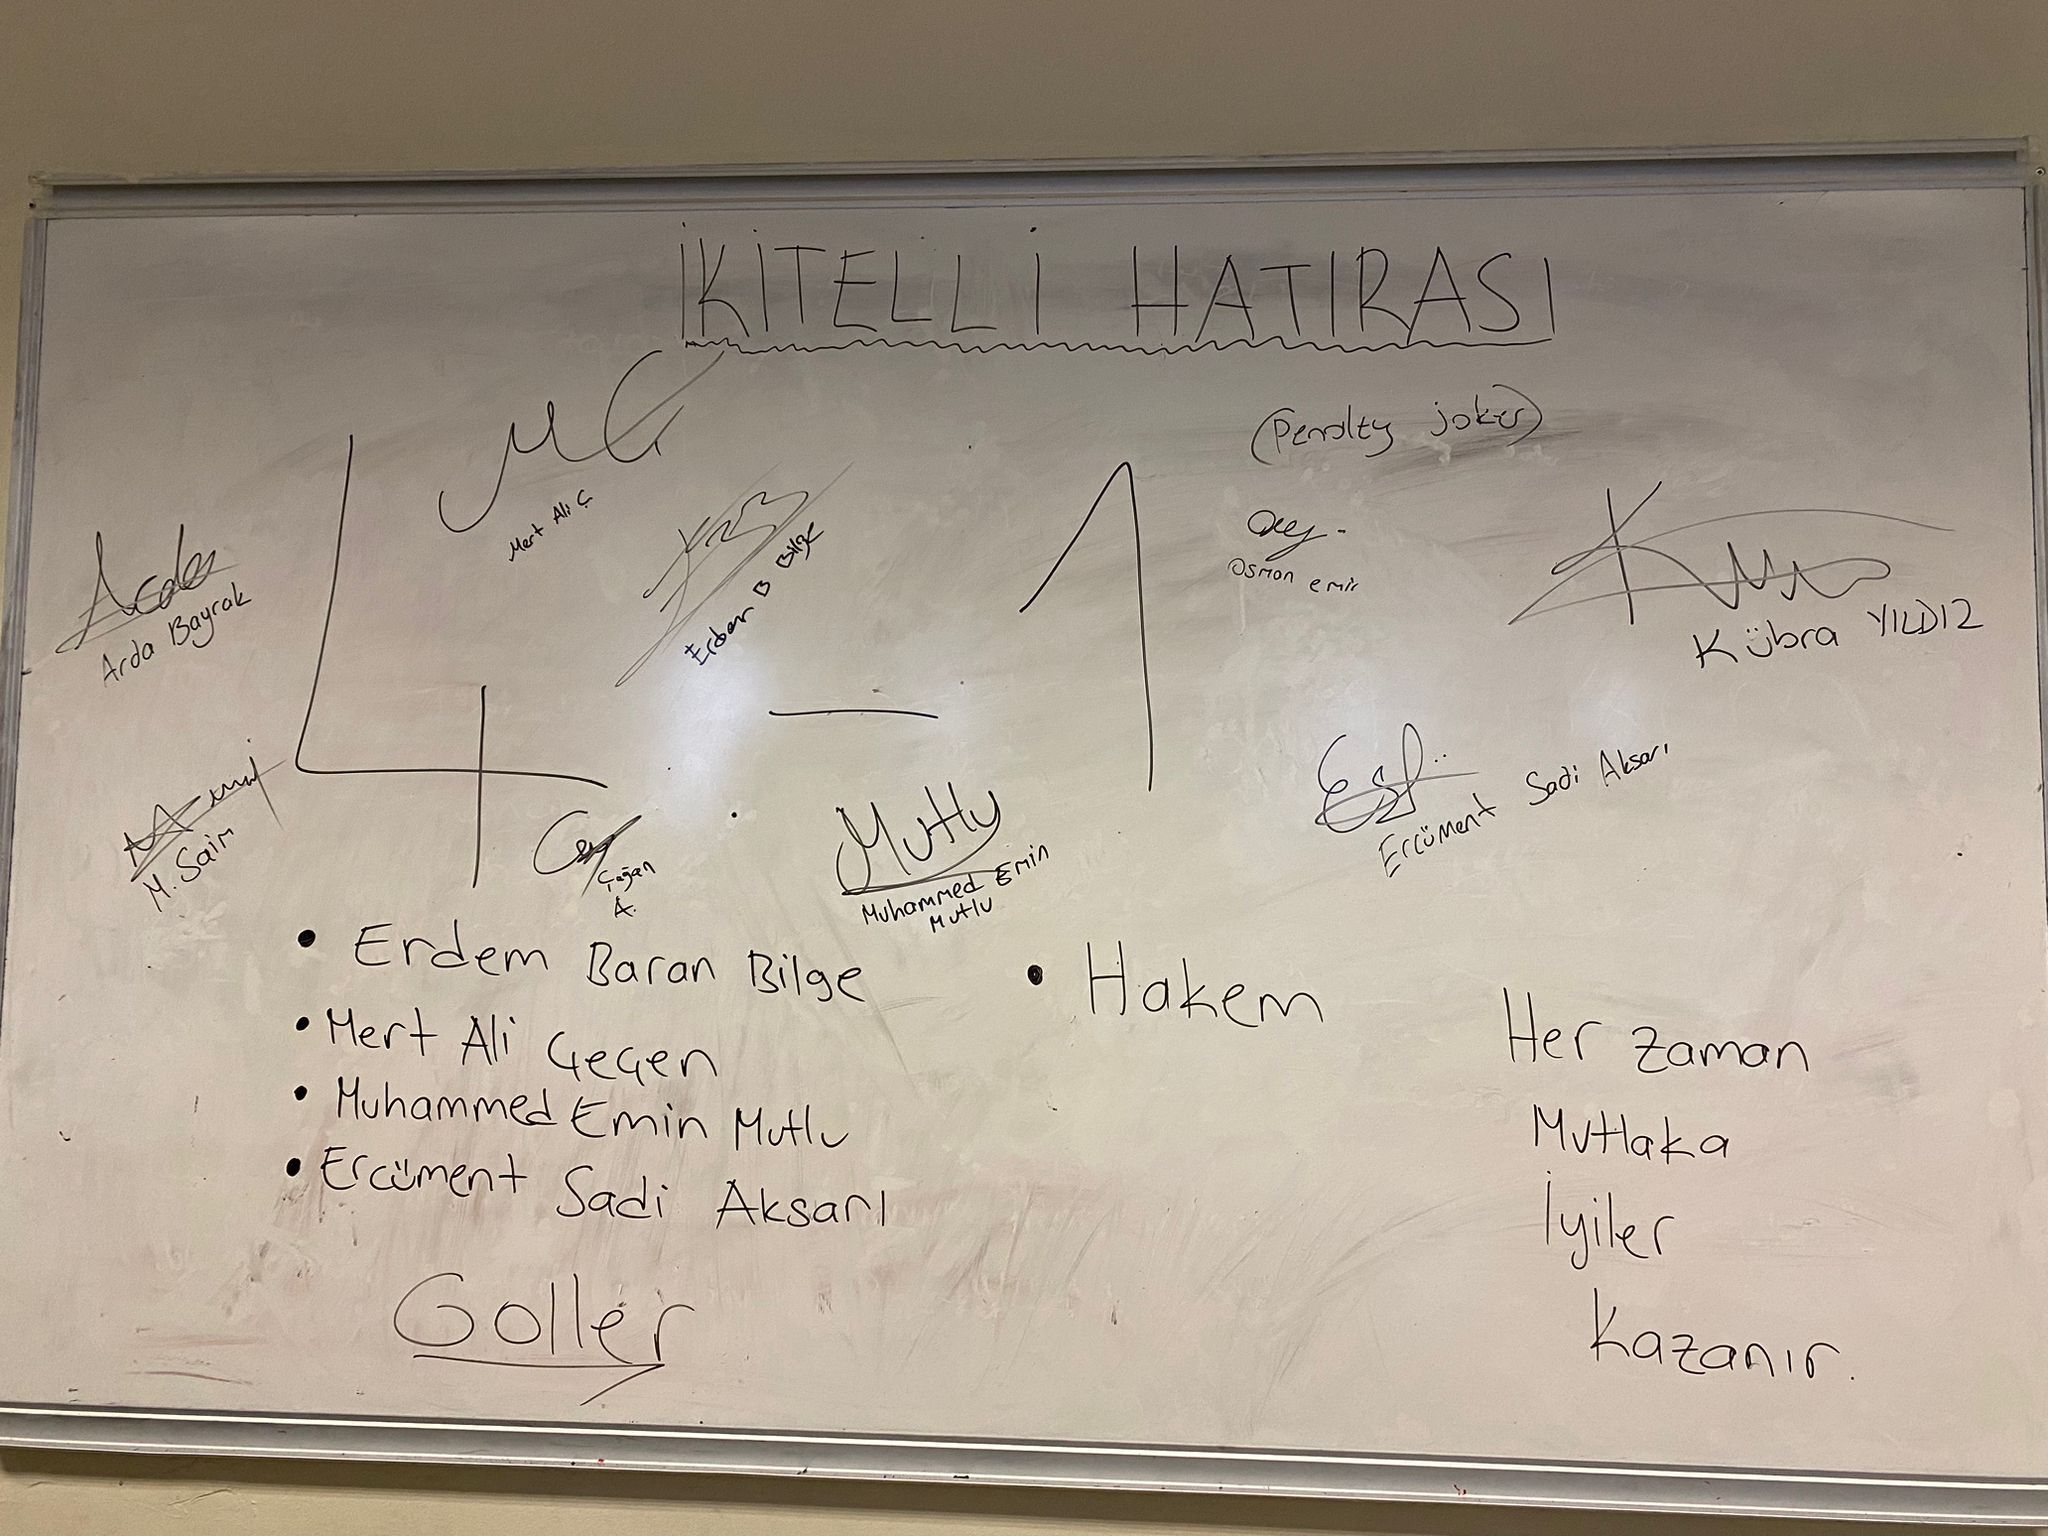 İKİTELLİ HATIRASI
MÇ
Mert Ali Ç
(Penalty joker)
Arda
Arda Bayrak
Erdem B Bilge
Osman emir
Kübra YILDIZ
4 – 1
M. Saim
Çağan
A.
Mutlu
Muhammed Emin
Mutlu
Ercüment Sadi Aksarı
• Erdem Baran Bilge
• Mert Ali Geçen
• Muhammed Emin Mutlu
• Ercüment Sadi Aksarı
Goller
• Hakem
Her zaman
Mutlaka
İyiler
Kazanır.